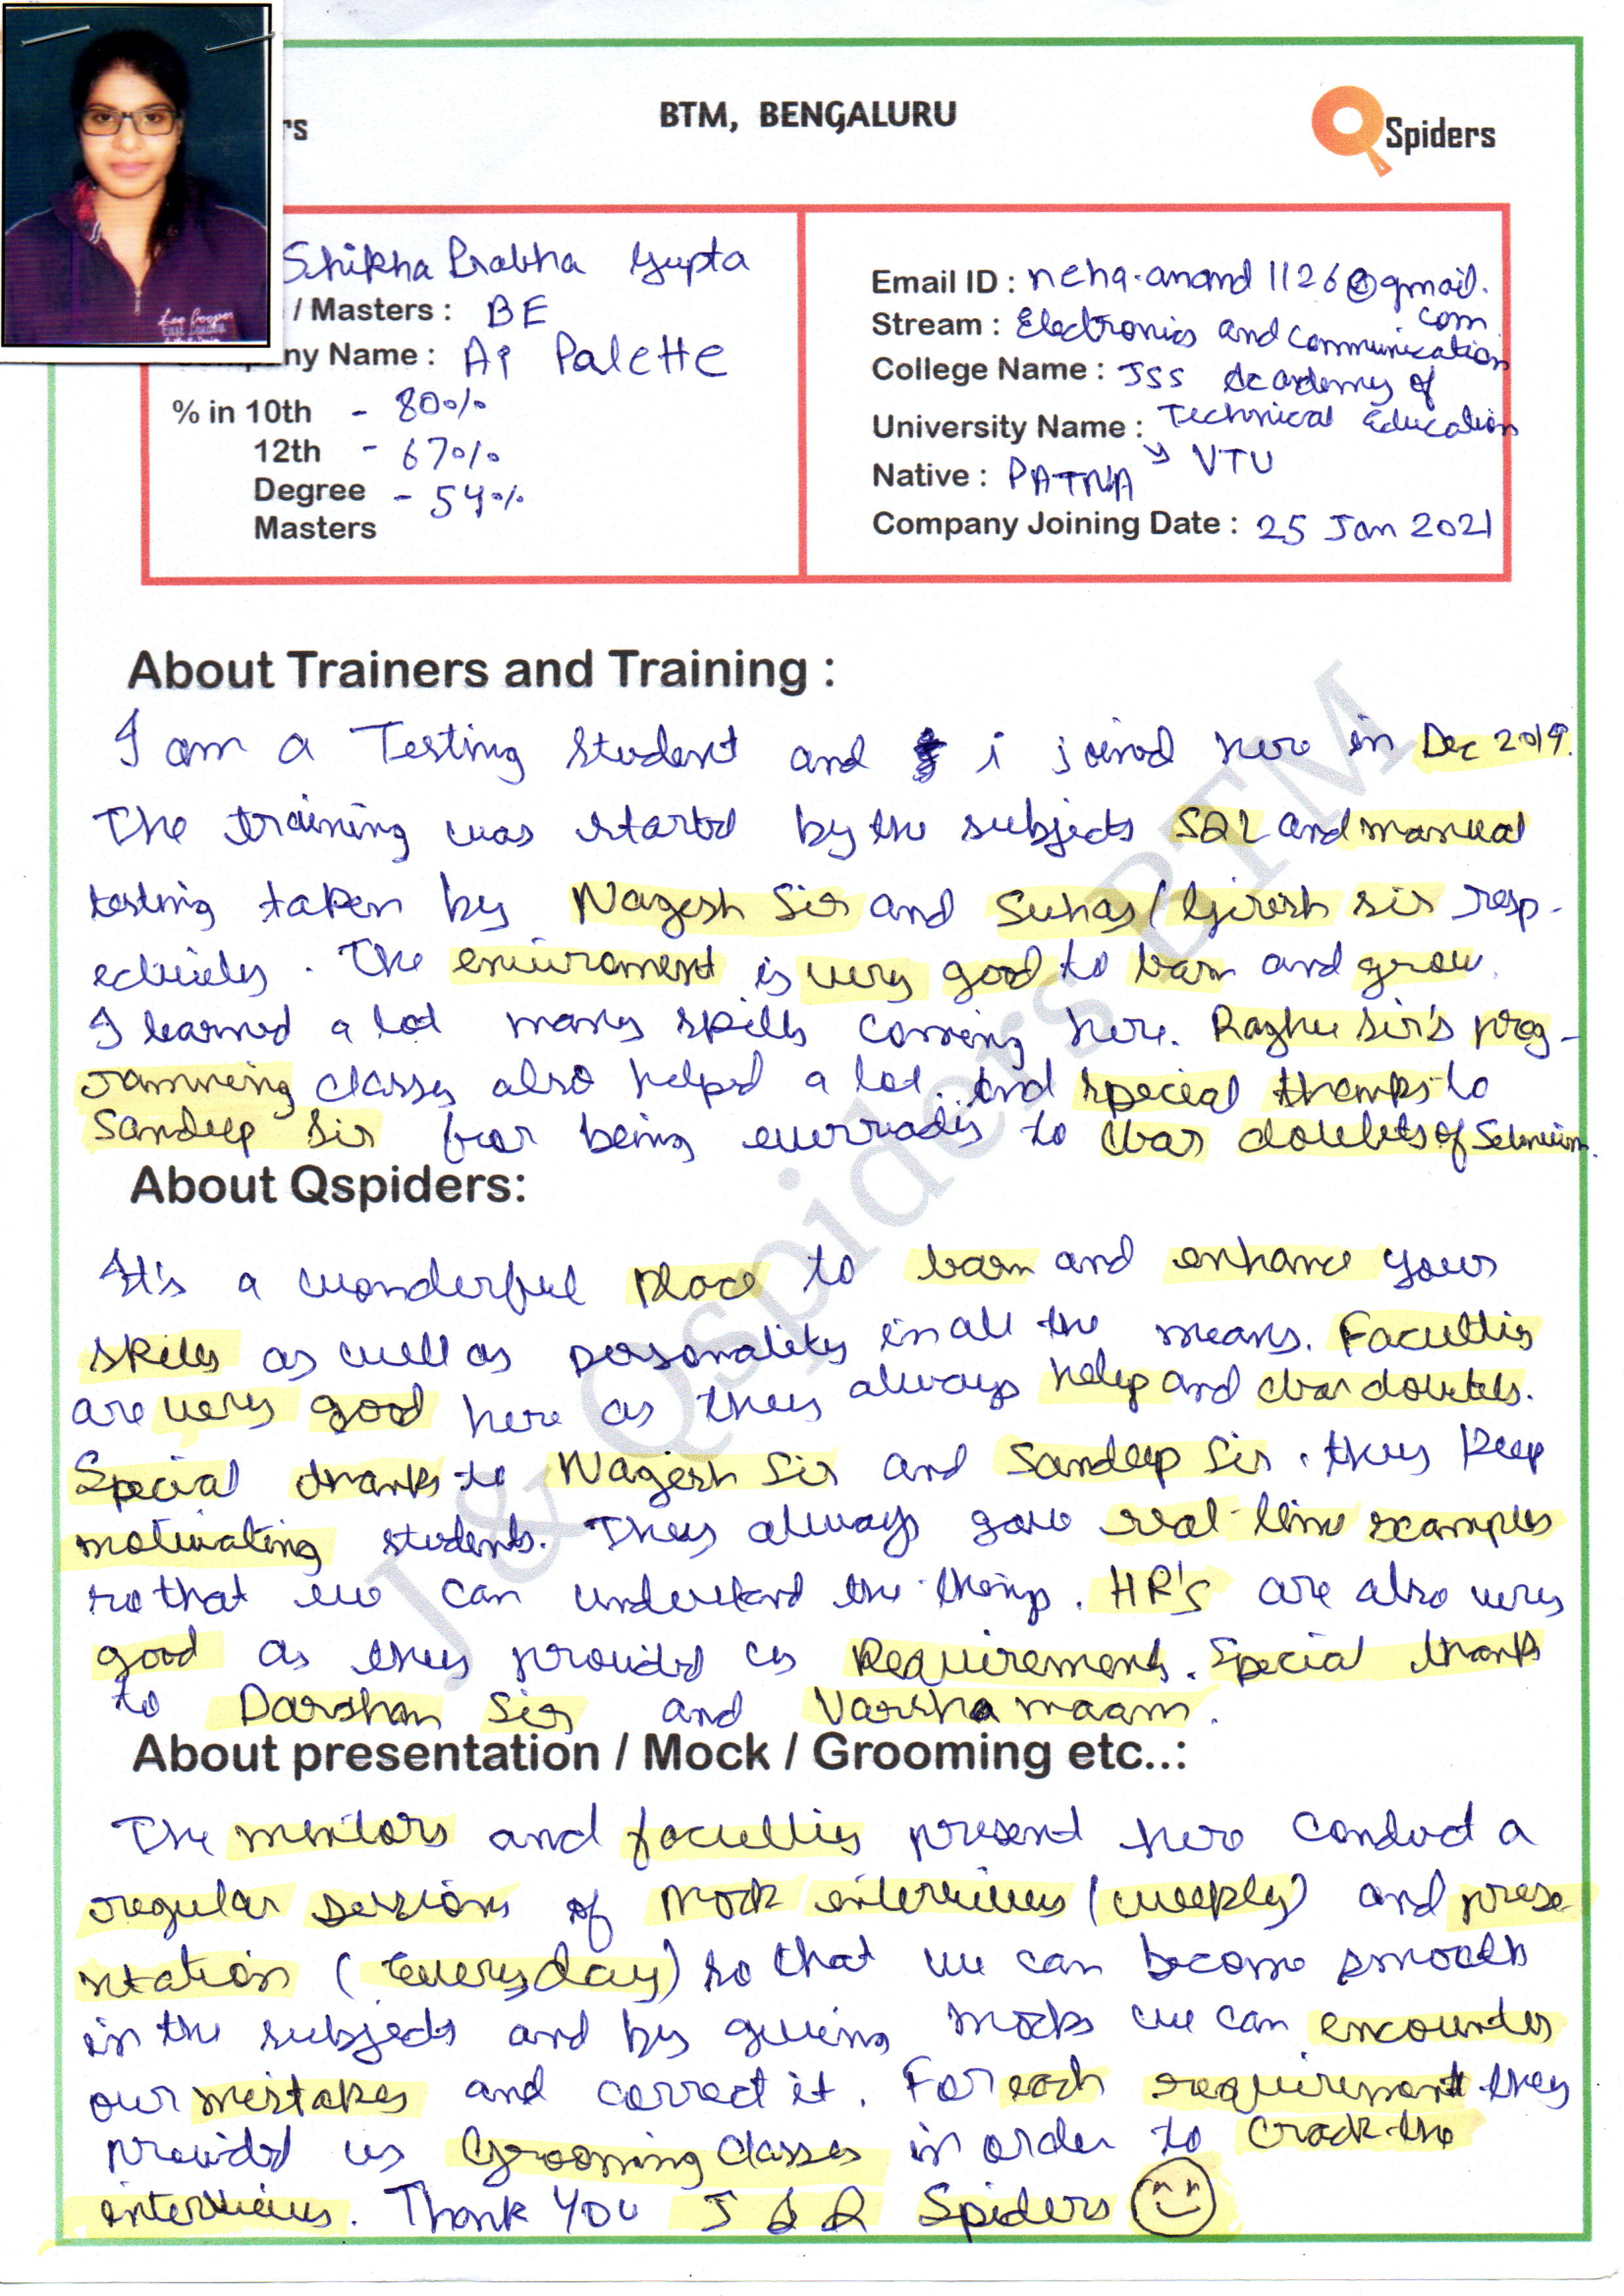 rs
BTM, BENGALURU
Spiders
Shikha Prabha Gupta
/ Masters : BE
ny Name : Ai Palette
% in 10th - 80%
12th - 67%
Degree - 54%
Masters
Email ID : neha.anand1126@gmail.
com
Stream : Electronics and Communication
College Name : JSS Academy of
Technical Education
University Name : → VTU
Native : PATNA
Company Joining Date : 25 Jan 2021
Lee Cooper
About Trainers and Training :
I am a Testing Student and i joined here in Dec 2019.
The training was started by the subjects SQL and manual
testing taken by Nagesh Sir and Suhas/Girish sir resp-
ectively. The enviroment is very good to learn and grow.
I learned a lot many skills coming here. Raghu Sir's prog-
ramming classes also helped a lot. And special thanks to
Sandeep Sir for being everready to clear doubts of Selenium.
About Qspiders:
It's a wonderful place to learn and enhance your
skills as well as personality in all the means. Faculties
are very good here as they always help and clear doubts.
Special thanks to Nagesh Sir and Sandeep Sir. they keep
motivating students. They always gave real-time examples
so that we can understand the things. HR's are also very
good as they provided us Requirements. Special thanks
to Darshan Sir and Varsha maam.
About presentation / Mock / Grooming etc..:
The mentors and faculties present here conduct a
regular sessions of Mock interviews (weekly) and prese-
ntation (Everyday) so that we can become smooth
in the subjects and by giving mocks we can encounter
our mistakes and correct it. For each requirement they
provided us Grooming Classes in order to Crack the
interviews. Thank You J & Q Spiders
J & Qspiders BTM